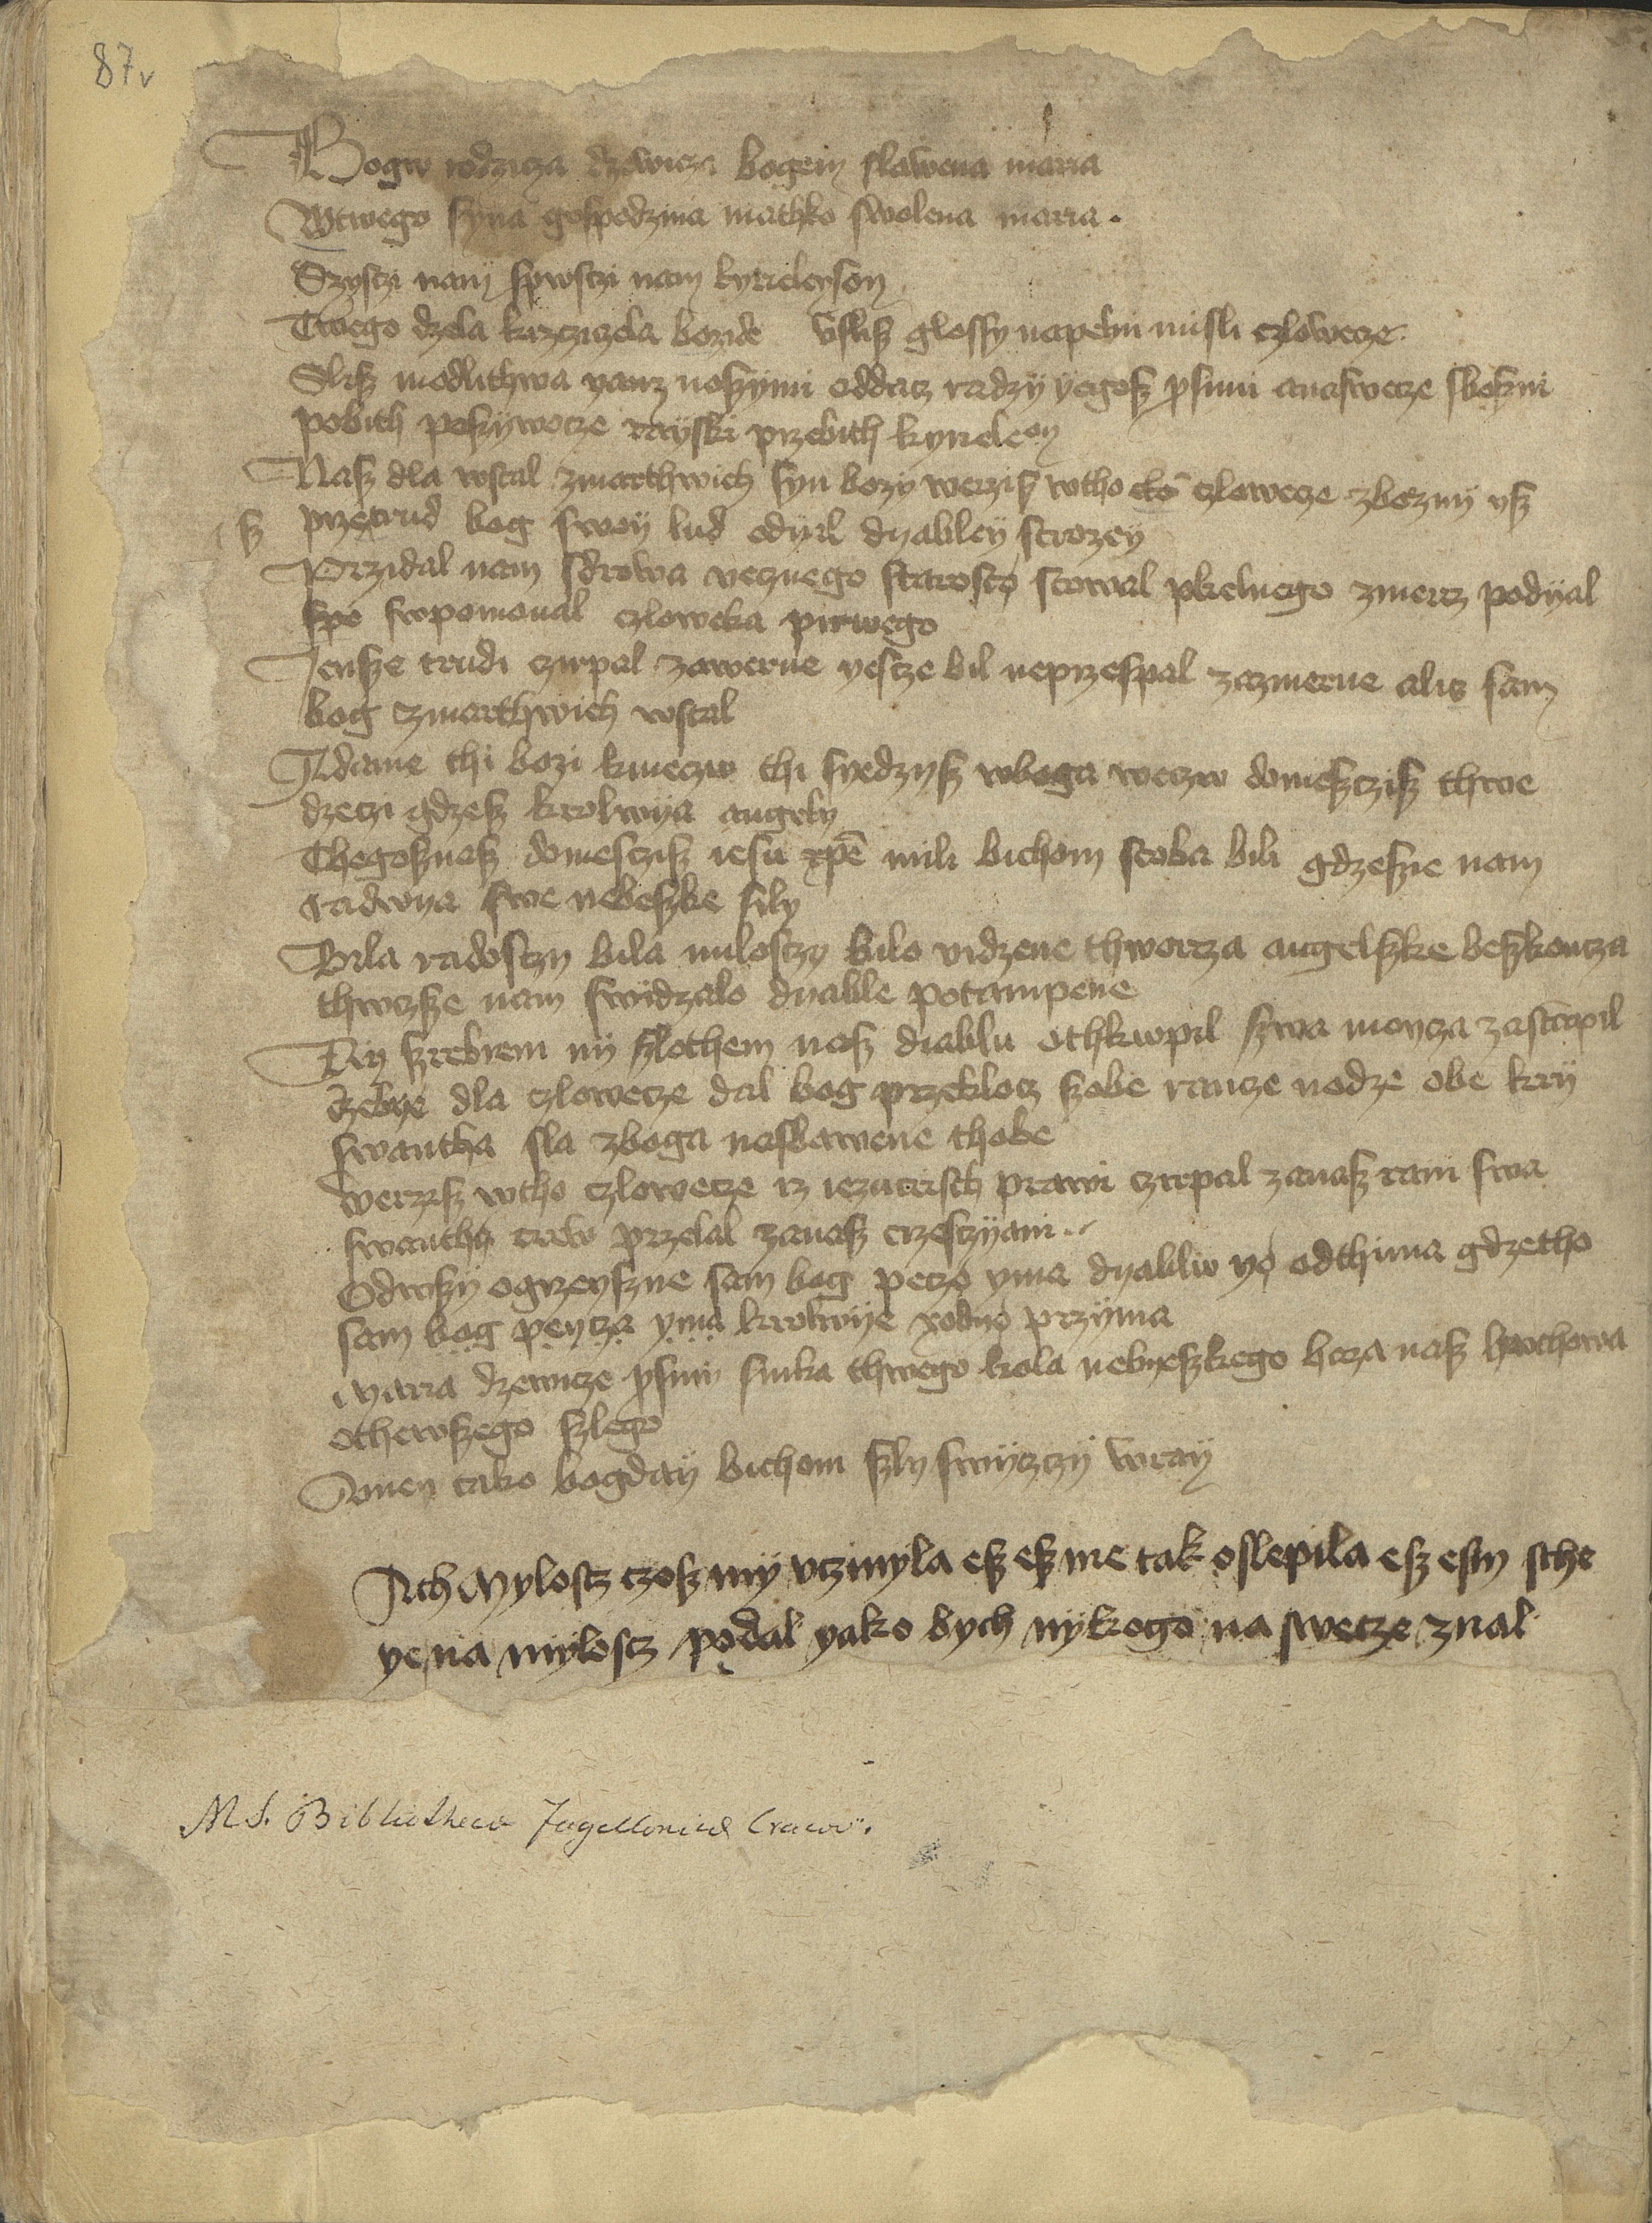 87v
Bogw rodzicza dzewicza bogem slawena maria
Wtwego syna gospodzina mathko swolena maria.
Szyszczi nam spwsczi nam kyrieleyson
Twego dzela krzcziczela bozicze vslisz glossy napeln misli czlowecze
Slisz modlithwa yanz noszymi oddacz raczy yegosz prosimi anaswecze sboszni
pobith poszywocze rayski przebith kyrieleson
Nasz dla wstal zmarthwich syn bozy werzisz wtho czlowecze zbozny ysz
sz przetrud bog swoy lud odyal dyabley strozey
Przidal nam sdrowa wecznego starosto scowal pkelnego zmercz podyal
spo swpomonal czloweka pirwego
Jensze trudi czirpal zawerne yescze bil neprzespal zazmerne alisz sam
bog zmarthwich wstal
Adame thi bozi kmeczw thi syedzysz wboga weczw domesczisz thwe
dzeczi gdzesz krolwya angely
Thegosznasz domesczisz iesu xpe mili bichom stoba bili gdzeszne nam
radwya swe nebeszke sily
Bila radosczy bila miloszczy bilo vidzene thworcza angelszke beszkoncza
thwczsze nam swidzalo dyable potampene
Ny szrebrem ny szlothem nasz diablu othkwpil szwa moycza zastwpil
czebye dla czlowecze dal bog przeklocz szobe rancze nodze obe kry
swantha sla zboga nasbawene thobe
werzisz wtho czlowecze iz iezucristh prawi czirpal zanasz rani swa
swantha crew przelal zanasz crzesczyani
Odwszy ogrzeyszne sam bog peczo yma dyablw yo odthima gdzetho
sam bog peycza yma krolwye yodno przyma
Maria dzewicze prosimi sinka thwego krola nebyeszkego haza nasz hwchowa
othewszego szlego
Amen tako bogday bichom szly swyczy wray
Ach Myloscz czosz my vczinyla esz esz me tak oslepila esz esm sche
ye na myloscz podal yako bych nykogo na swecze znal
MS. Bibliothecae Jagellonicae Cracov.